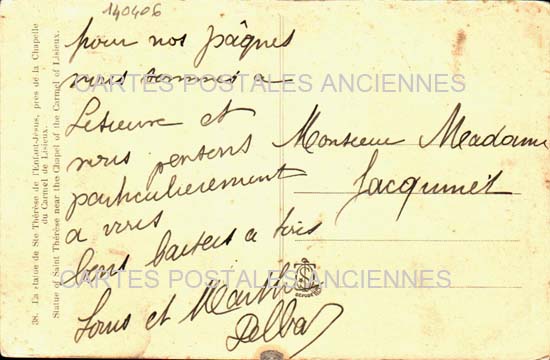 140406
38. La statue de Ste Thérèse de l'Enfant-Jésus, près de la Chapelle
du Carmel de Lisieux.
Statue of Saint Thérèse near the Chapel of the Carmel of Lisieux.
pour nos pâques
nous sommes a
Lisieuve et
nous pensons
particulièrement
a vous
bons baisers a tous
Louis et Marth
Delba
Monsieur Madame
Jacquinet
CARTES POSTALES ANCIENNES
CARTES POSTALES ANCIENNES